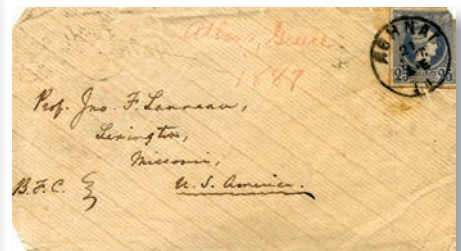 Athens, Greece
1887
ΑΘΗΝΑΙ
25 25
Prof. Jno. F. Lanneau,
Lexington,
Missouri,
B.F.C.
U.S. America.